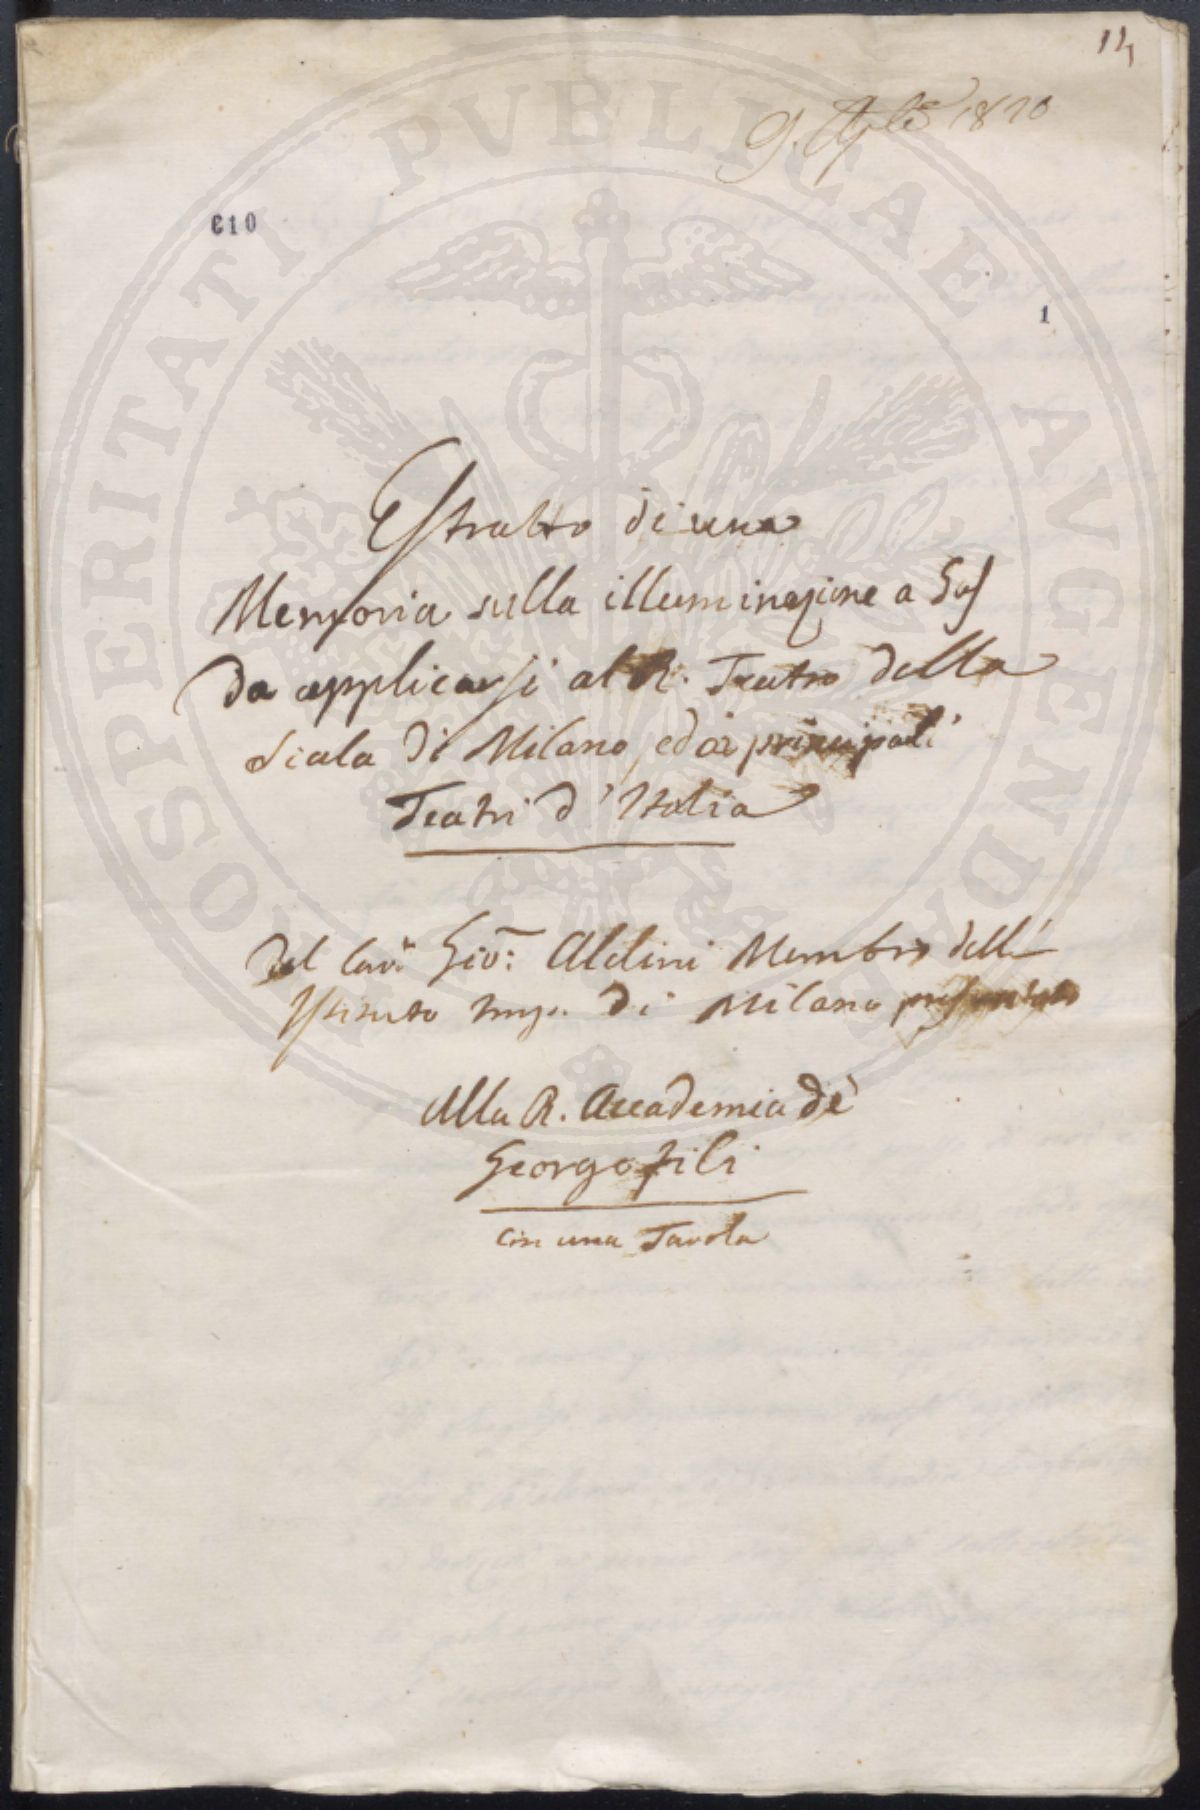 14
9. Aple 1820
610
1
Estratto di una
Memoria sulla illuminazione a Gas
da applicarsi al R. Teatro della
Scala di Milano, ed ai principali
Teatri d'Italia
Del Cavr. Gio: Aldini Membro dell'
Istituto Imp. di Milano presentato
Alla R. Accademia de'
Georgofili
Con una Tavola
PROSPERITATI PVBLICAE AVGENDAE